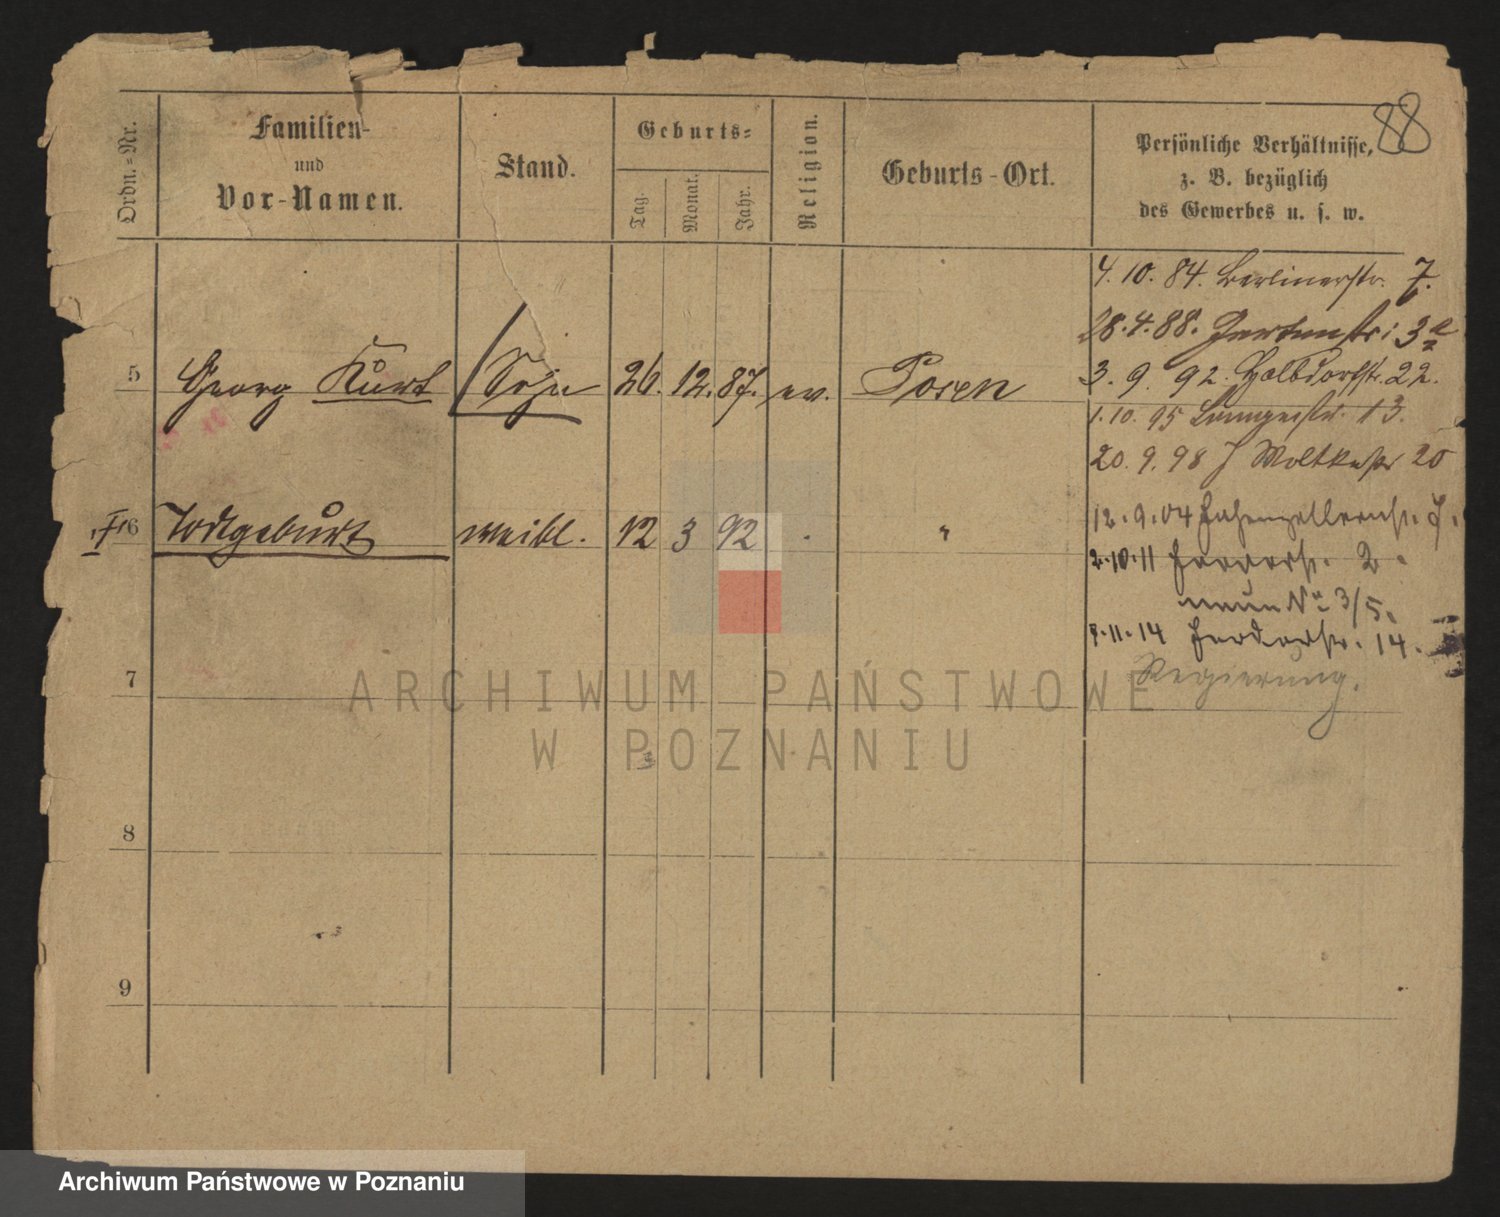 88
Ordn.-Nr.
Familien-
und
Vor-Namen.
Stand.
Geburts-
Tag.
Monat.
Jahr.
Religion.
Geburts-Ort.
Persönliche Verhältnisse,
z. B. bezüglich
des Gewerbes u. s. w.
4. 10. 84. Berlinerstr. 7.
28. 4. 88. Gartenstr: 3a
5 Georg Kurt Sohn 26. 12. 87. ev. Posen
3. 9. 92. Halbdorfstr. 22.
1. 10. 95 Langestr. 13.
20. 9. 98 Moltkestr 20
6 Todtgeburt weibl. 12 3 92 . "
12. 9. 04 Hohenzollernstr. 7.
2. 10. 11 2.
neue No 3/5.
11. 14 14.
Regierung.
7
8
9
ARCHIWUM PAŃSTWOWE
W POZNANIU
Archiwum Państwowe w Poznaniu